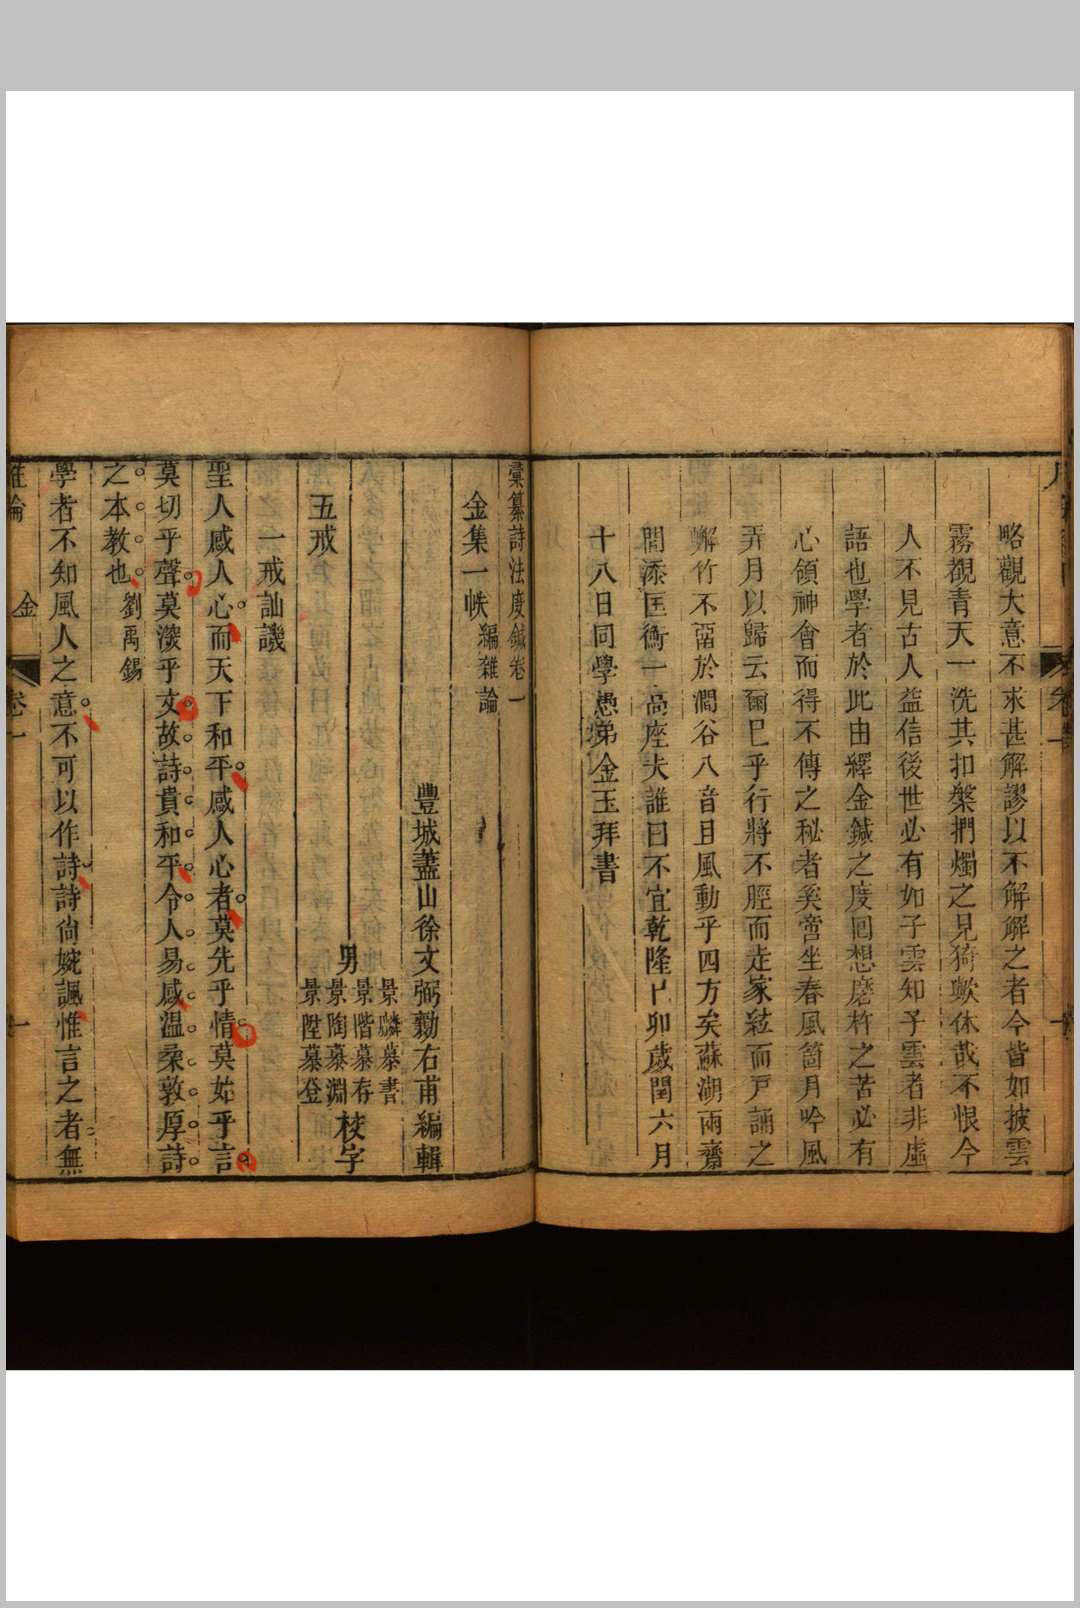 略觀大意不求甚解謬以不解解之者今皆如披雲
霧覩青天一洗其扣槃捫燭之見猗歟休哉不恨今
人不見古人益信後世必有如子雲知子雲者非虛
語也學者於此由繹金鍼之度囘想磨杵之苦必有
心領神會而得不傳之秘者奚啻坐春風箇月吟風
弄月以歸云爾已乎行將不脛而走家絃而戸誦之
嶰竹不啻於澗谷八音且風動乎四方矣蘇湖兩齋
間添匡衡一高座夫誰曰不宜乾隆己卯歲閏六月
十八日同學愚弟金玉拜書
彙纂詩法度鍼卷一
金集一帙編雜論
豐城蓋山徐文弼勷右甫編輯
男
景麟慕書
景階慕存
景陶慕淵
景陞慕登
校字
五戒
一戒訕譏
聖人感人心而天下和平感人心者莫先乎情莫始乎言
莫切乎聲莫深乎文故詩貴和平令人易感溫柔敦厚詩
之本教也劉禹錫
學者不知風人之意不可以作詩詩尙婉諷惟言之者無
雜論
金
卷一
一